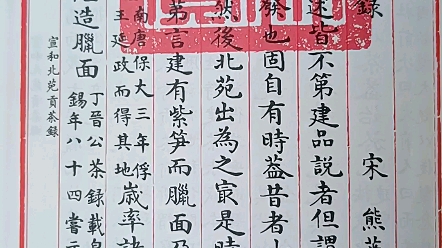 錄 宋 熊
述皆不第建品說者但謂
發也固自有時蓋昔者
然後北苑出為之冣是時
弟言建有紫笋而臘面乃
南唐保大三年俘
王延政而得其地
歲率
造臘面
丁晉公茶錄載
錫年八十四嘗云
宣和北苑貢茶錄